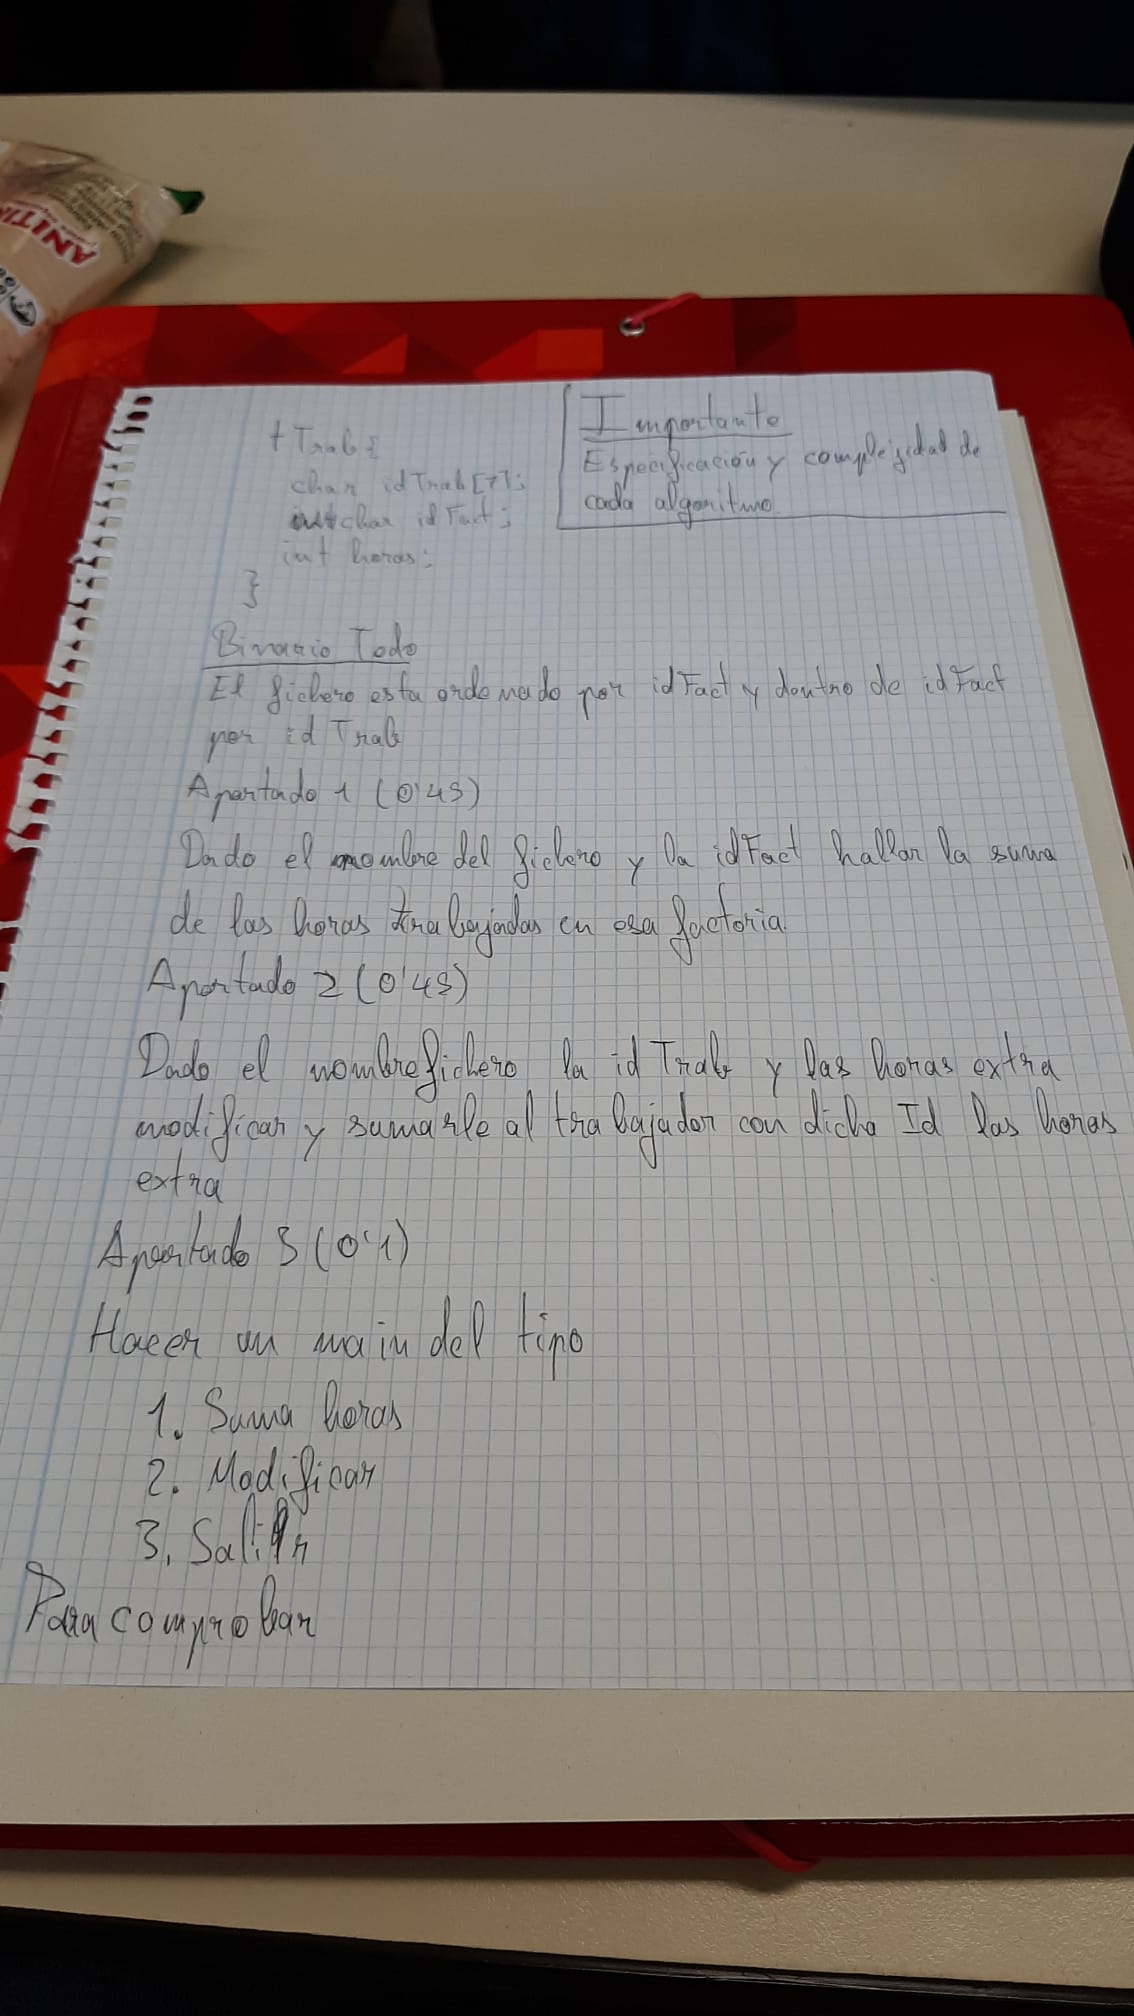 ANITIN
tTrab{
char idTrab[7];
char idFact;
int horas;
}
Importante
Especificación y complejidad de
cada algoritmo
Binario Todo
El fichero esta ordenado por idFact y dentro de idFact
por id Trab
Apartado 1 (0'45)
Dado el nombre del fichero y la idFact hallar la suma
de las horas trabajadas en esa factoria
Apartado 2 (0'45)
Dado el nombrefichero la id Trab y las horas extra
modificar y sumarle al trabajador con dicha Id las horas
extra
Apartado 3 (0'1)
Hacer un main del tipo
1. Suma horas
2. Modificar
3. Salir
Para comprobar